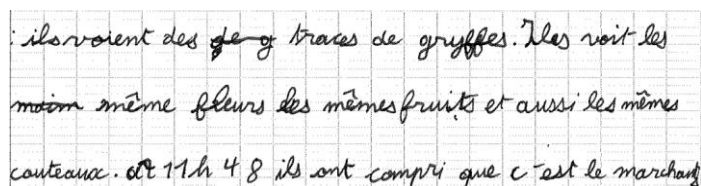 : ils voient des traces de gryffes. Iles voit les
même fleurs les mêmes fruits et aussi les mêmes
couteaux. at 11h 48 ils ont compri que c-est le marchand